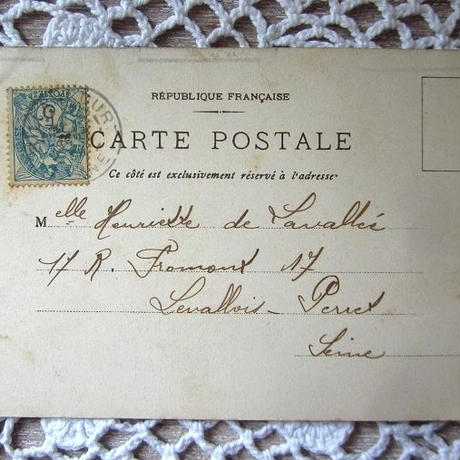 RÉPUBLIQUE FRANÇAISE
CARTE POSTALE
Ce côté est exclusivement réservé à l'adresse
Melle Henriette de Lavallés
17 R. Fromont 17
Levallois-Perret
Seine